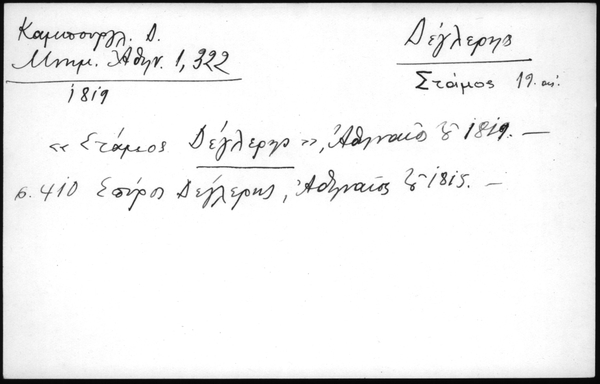 Καμπουργλ. Δ.
Μνημ. Ἀθην. 1, 322
1819
Δέγλερης
Στάμος 19. αἰ.
«Στάμος Δέγλερης», Ἀθηναῖος 1819. —
σ. 410 Σπύρος Δέγλερης, Ἀθηναῖος 1815. —